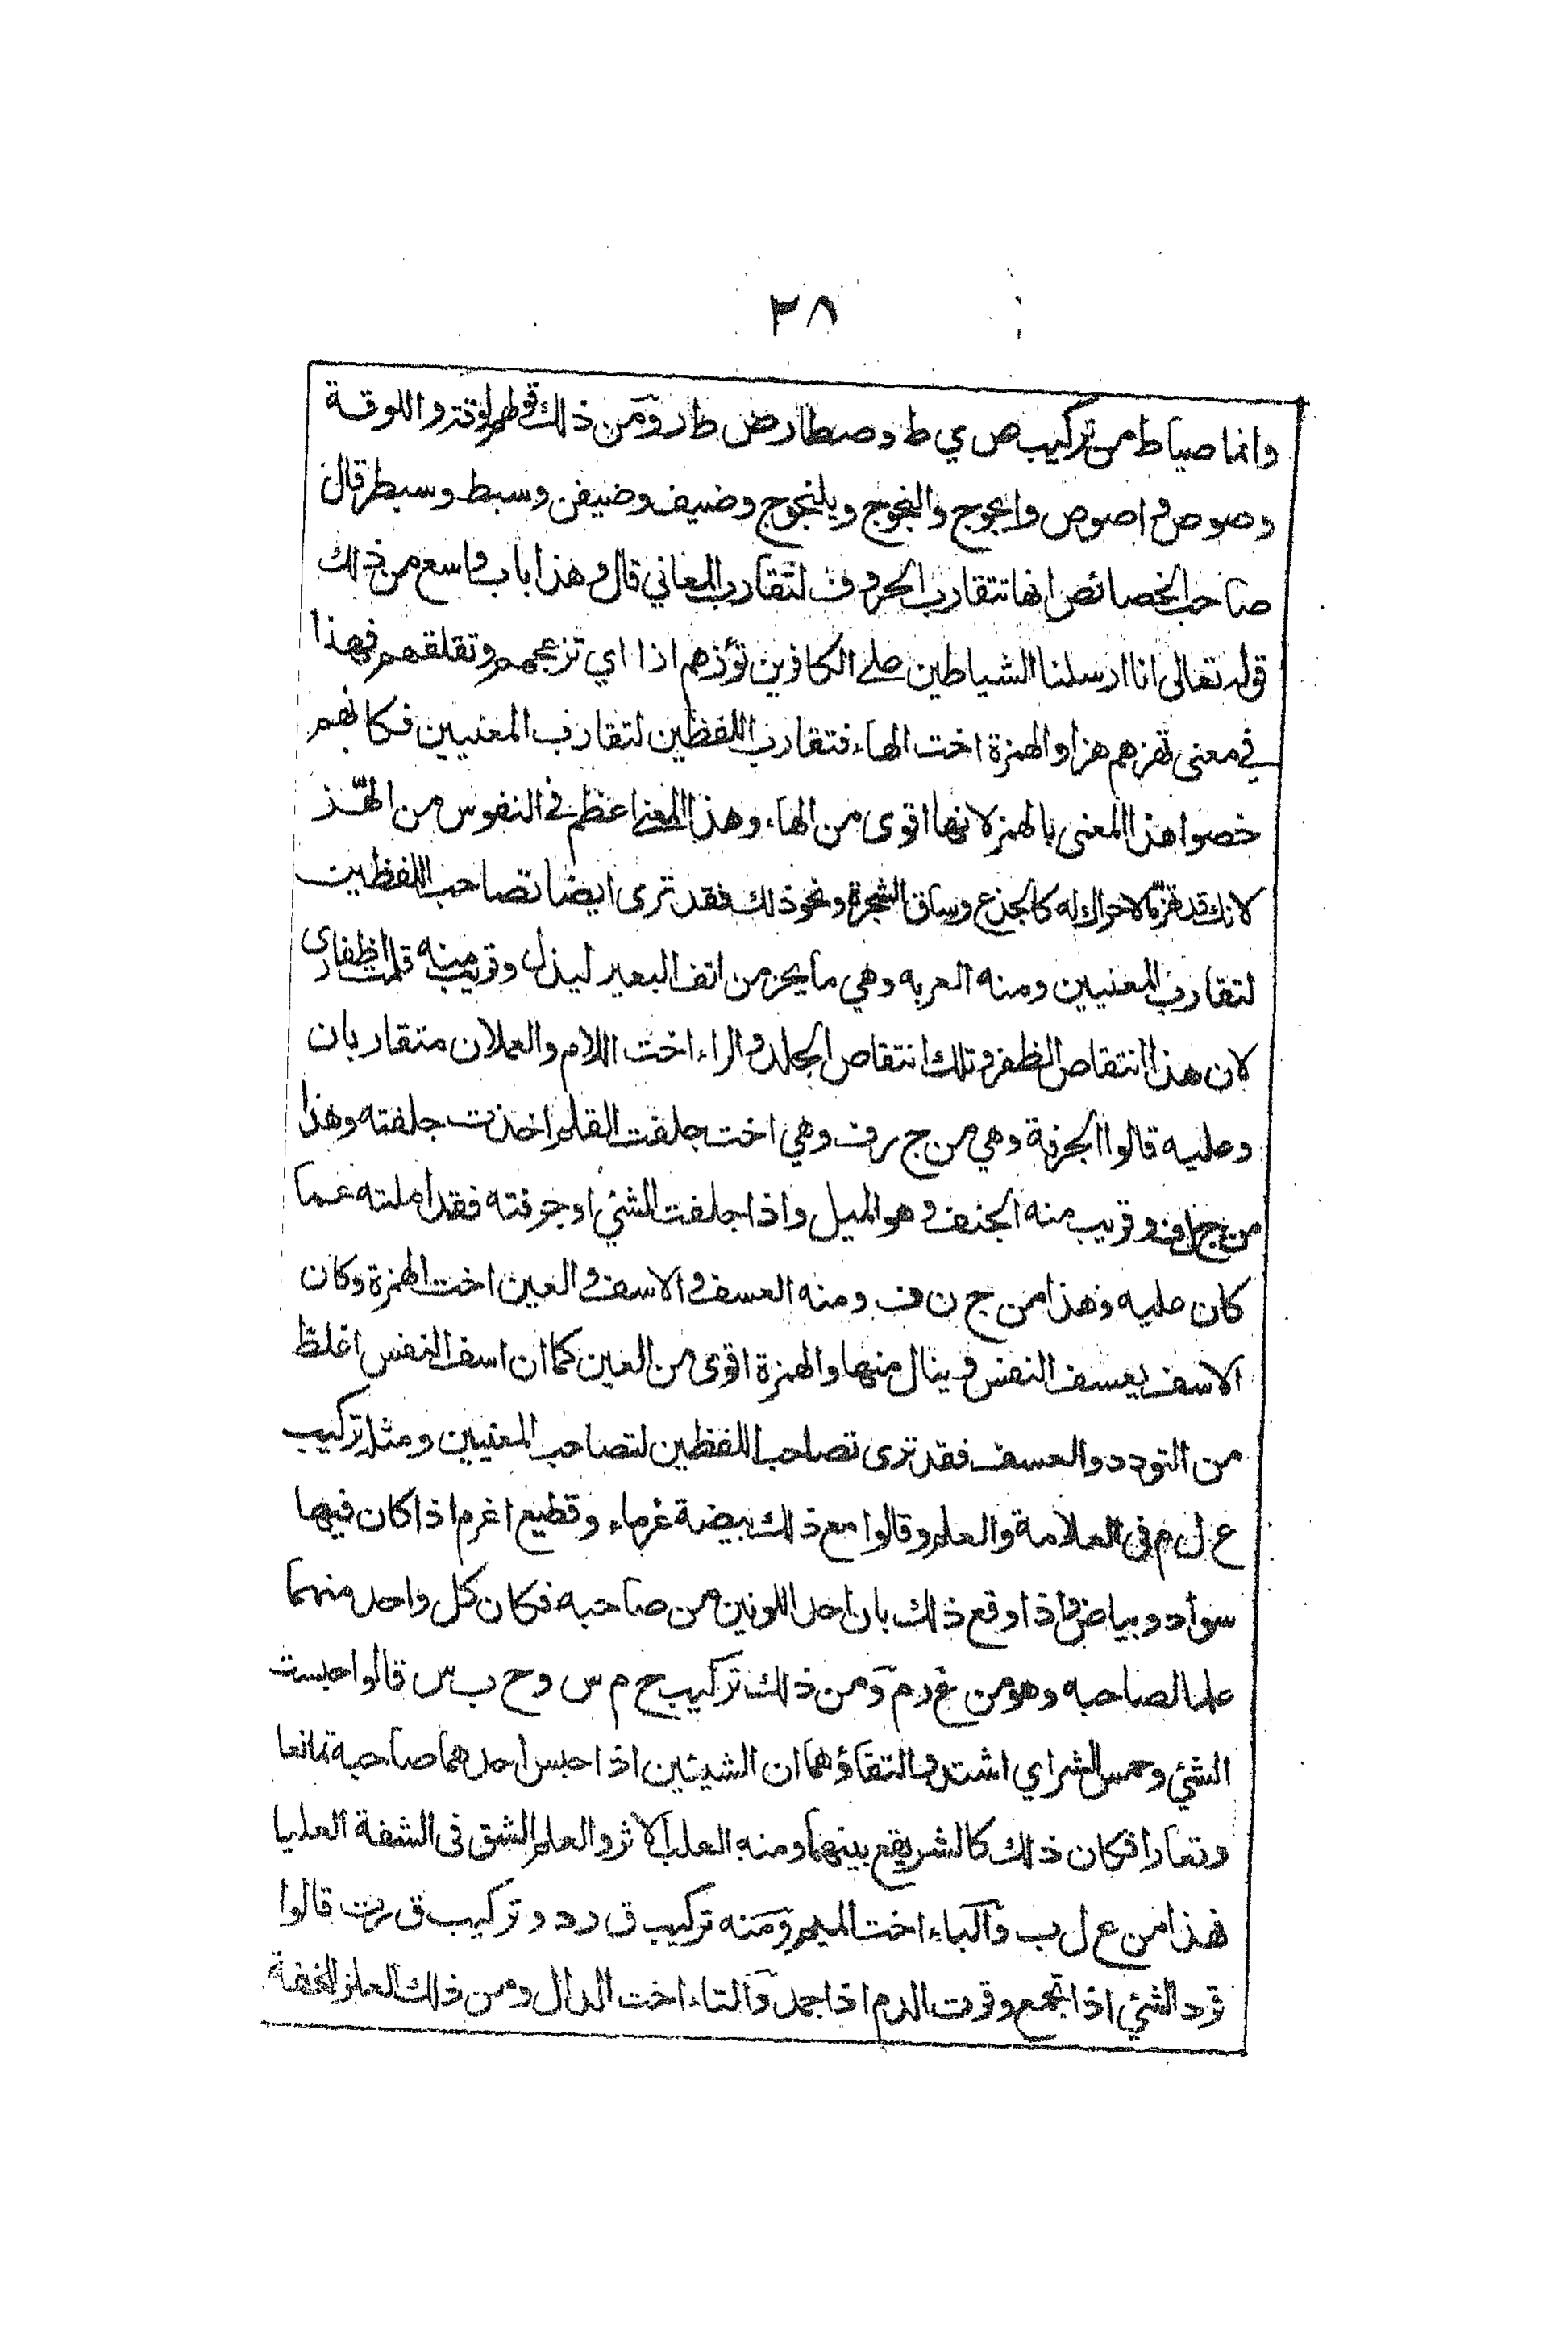 ٣٨
وانما صياط من تركيب ص ي ط وصطار ض ط ر ومن ذلك قولهم لوقة والالوقة
وصوص واصوص والنجوج ويلنجوج وضيف وضيفن وسبط وسبطر قال
صاحب الخصائص انها تتقارب الحروف لتقارب المعاني قال وهذا باب واسع من ذلك
قوله تعالى انا ارسلنا الشياطين على الكافرين تؤزهم ازا اي تزعجهم وتقلقهم فهذا
في معنى تهزهم هزا والهمزة اخت الهاء فتقارب اللفظين لتقارب المعنيين فكانهم
خصوا هذا المعنى بالهمز لانها اقوى من الهاء وهذا المعنى اعظم في النفوس من الهز
لانك قد تهز ما لا حراك له كالجذع وساق الشجرة ونحو ذلك فقد ترى ايضا تصاحب اللفظين
لتقارب المعنيين ومنه العربه وهي ما يحز من انف البعير ليذل وقريب منه قلمت اظفاري
لان هذا انتقاص الظفر وتلك انتقاص الجلد والراء اخت اللام والعملان متقاربان
وعليه قالوا الجرفة وهي من ج ر ف وهي اخت جلفت القلم اخذت جلفته وهذا
من ج ل ف وقريب منه الجنف وهو الميل واذا جلفت الشئ او جرفته فقد املته عما
كان عليه وهذا من ج ن ف ومنه العسف والاسف والعين اخت الهمزة وكان
الاسف يعسف النفس وينال منها والهمزة اقوى من العين كما ان اسف النفس اغلظ
من التودد والعسف فقد ترى تصاحب اللفظين لتصاحب المعنيين ومثله تركيب
ع ل م في العلامة والعلم وقالوا مع ذلك بيضة غرماء وقطيع اغرم اذا كان فيها
سواد وبياض واذا وقع ذلك بان احد اللونين من صاحبه فكان كل واحد منهما
علما لصاحبه وهو من غ ر م ومن ذلك تركيب ح م س وح ب س قالوا حبست
الشئ وحمس الشر اي اشتد والتقاؤهما ان الشيئين اذا حبس احدهما صاحبه تمانعا
وتعازا فكان ذلك كالشر يقع بينهما ومنه العلب الاثر والعلم الشق في الشفة العليا
فهذا من ع ل ب والباء اخت الميم ومنه تركيب ق ر د وتركيب ق ر ت قالوا
قرد الشئ اذا تجمع وقرت الدم اذا جمد والتاء اخت الدال ومن ذلك العلز الخفة